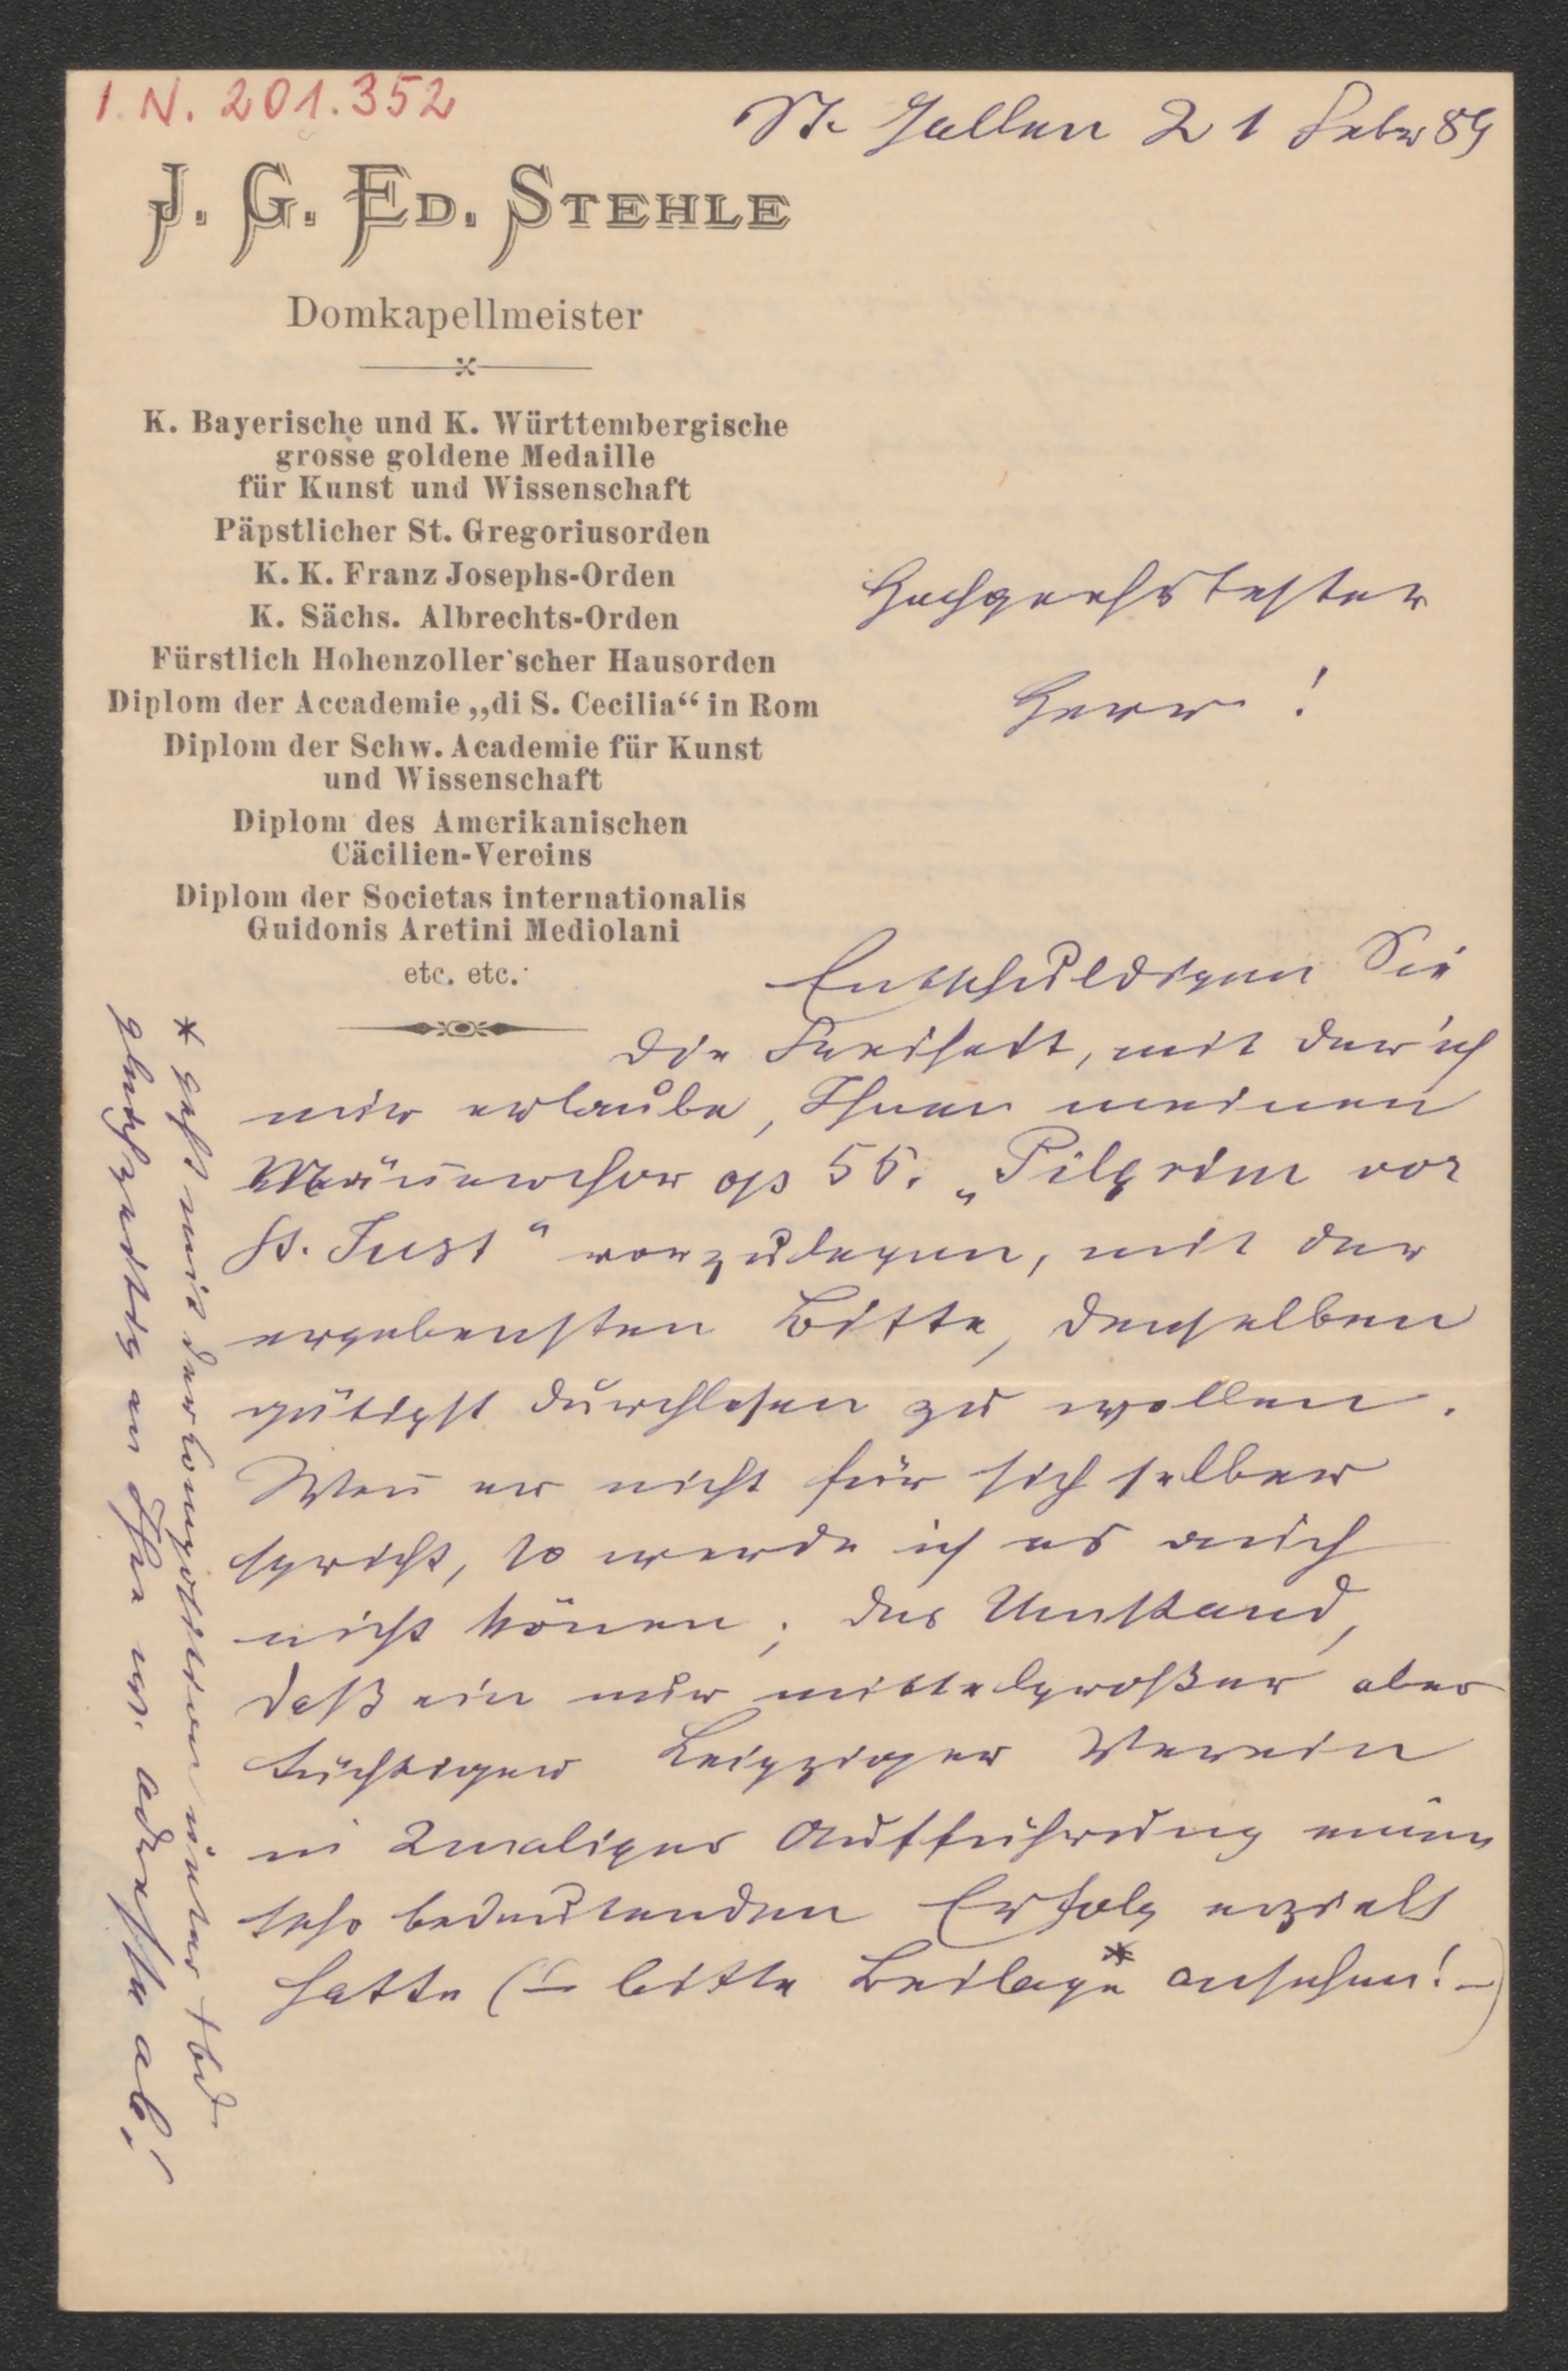 I. N. 201.352
St. Gallen 21 Febr 89
J. G. ED. STEHLE
Domkapellmeister
K. Bayerische und K. Württembergische
grosse goldene Medaille
für Kunst und Wissenschaft
Päpstlicher St. Gregoriusorden
K. K. Franz Josephs-Orden
K. Sächs. Albrechts-Orden
Fürstlich Hohenzoller'scher Hausorden
Diplom der Accademie „di S. Cecilia“ in Rom
Diplom der Schw. Academie für Kunst
und Wissenschaft
Diplom des Amerikanischen
Cäcilien-Vereins
Diplom der Societas internationalis
Guidonis Aretini Mediolani
etc. etc.
Hochgeehrtester
Herr !
Entschuldigen Sie
die Freiheit, mit der ich
mir erlaube, Ihnen meinen
Mäñerchor op 55. „Pilgrim vor
St. Just“ vorzulegen, mit der
ergebensten Bitte, denselben
gütigst durchlesen zu wollen.
Weñ er nicht für sich selber
spricht, so werde ich es auch
nicht köñen; der Umstand,
daß ein nur mittelgroßer aber
tüchtiger Leipziger Verein
in 2maliger Aufführung einen
sehr bedeutenden Erfolg erzielt
hatte (– bitte Beilage* ansehen! –)
* geht mit der Composition unter +bd
gleichzeitig an Ihre w. Adresse ab!